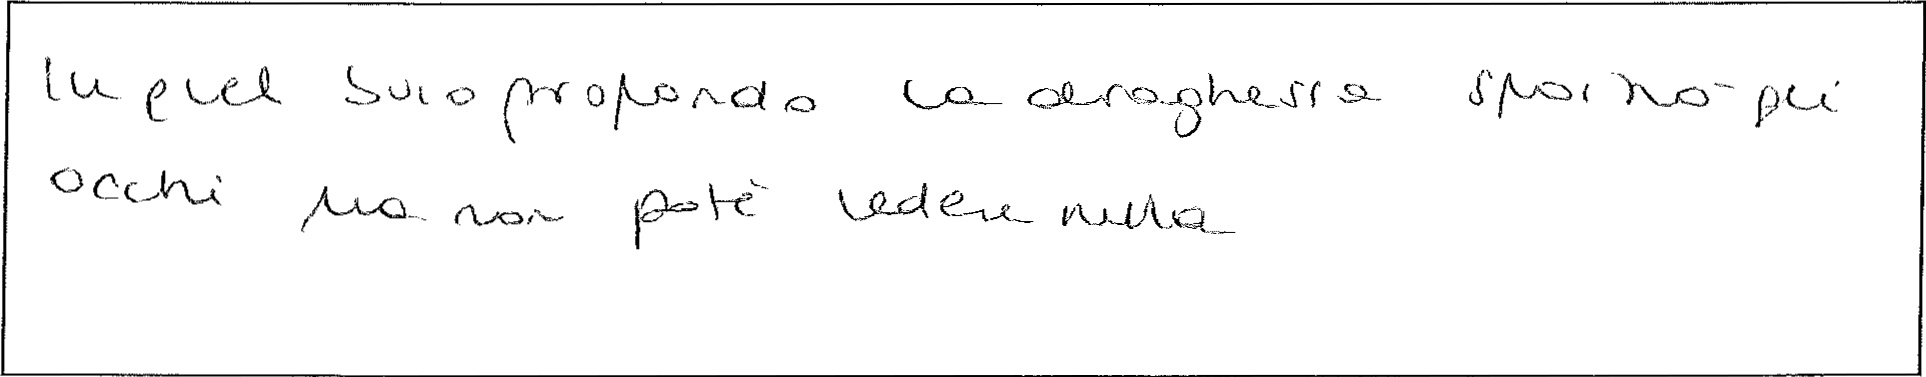 In quel buio profondo la draghessa spalancò gli
occhi ma non potè vedere nulla